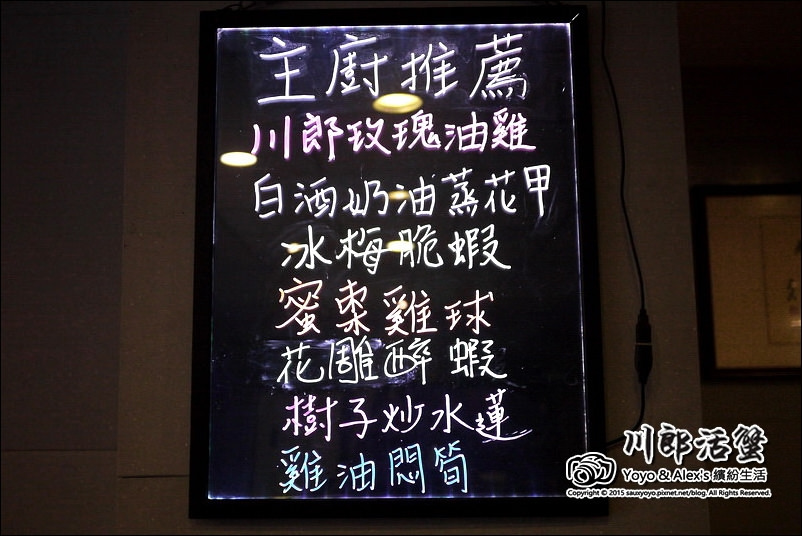 主廚推薦
川郎玫瑰油雞
白酒奶油蒸花甲
冰梅脆蝦
蜜棗雞球
花雕醉蝦
樹子炒水蓮
雞油悶筍
川郎活蟹
Yoyo & Alex's 繽紛生活
Copyright © 2015 sauxyoyo.pixnet.net/blog. All Rights Reserved.